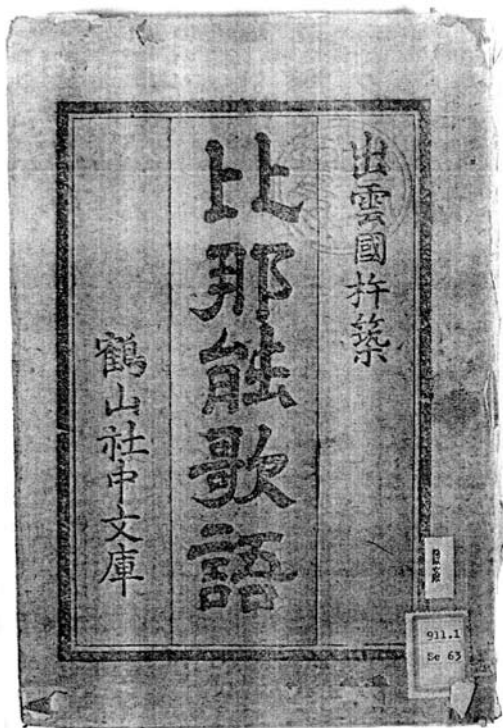 出雲國杵築
比那能歌語
鶴山社中文庫
911.1
Se 63